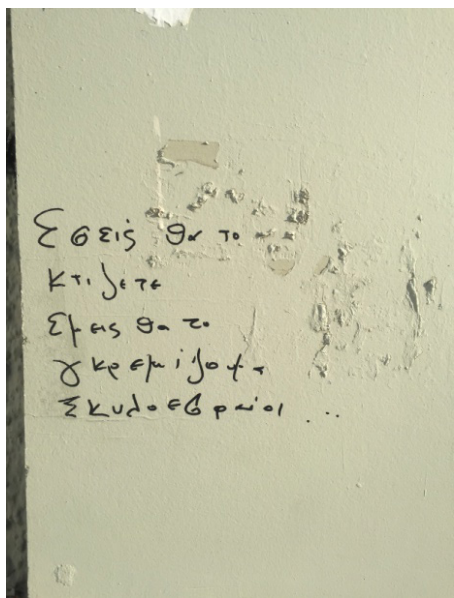 Εσείς θα το
κτίζετε
Εμεις θα το
γκρεμίζουμε
Σκυλοεβραίοι ...